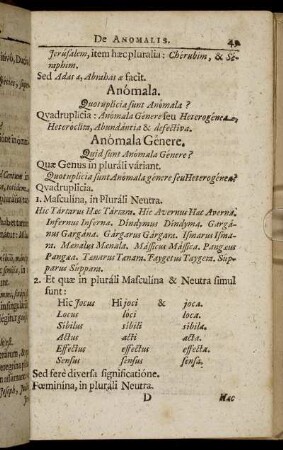 De Anomalis.
Jerusalem, item hæc pluralia: Cherubim, & Se-
raphim.
Sed Adas æ, Abrahas æ facit.
Anómala.
Quotuplicia sunt Anòmala?
Qvadruplicia: Anomala Gènere seu Heterogènea,
Heteroclita, Abundántia & defectiva.
Anómala Gènere.
Quid sunt Anòmala Gènere?
Quæ Genus in pluráli váriant.
Quotuplicia sunt Anòmala gènere seu Heterogènea?
Qvadruplicia.
1. Masculina, in Plurali Neutra.
Hic Tártarus Hæc Tártara. Hic Avernus Hæc Averna.
Infernus Inferna. Dindymus Dindyma. Gargá-
nus Gargána. Gárgarus Gárgara. Ismarus Isma-
ra. Mænalus Mænala. Mássicus Mássica. Pangæus
Pangæa. Tænarus Tænara. Taygetus Taygeta. Sup-
parus Suppara.
2. Et quæ in pluráli Masculina & Neutra simul
sunt:
Hic Jocus Hi joci & joca.
Locus loci loca.
Sibilus sibili sibila.
Actus acti acta.
Effectus effectus effecta.
Sensus sensus sensa.
Sed ferè diversa significatióne.
Fœminina, in plurali Neutra.
D Hæc